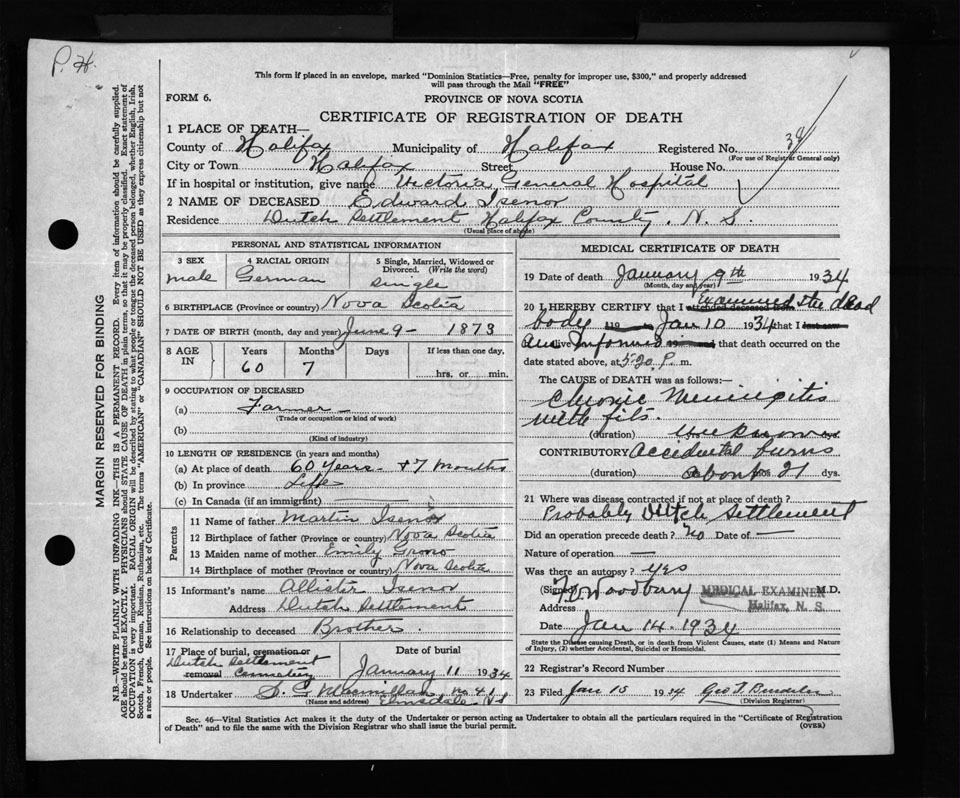 P. H.
This form if placed in an envelope, marked "Dominion Statistics—Free, penalty for improper use, $300," and properly addressed
will pass through the Mail "FREE"
FORM 6.
PROVINCE OF NOVA SCOTIA
CERTIFICATE OF REGISTRATION OF DEATH
1 PLACE OF DEATH—
County of Halifax Municipality of Halifax Registered No.
(For use of Registrar General only)
City or Town Halifax Street House No.
If in hospital or institution, give name Victoria General Hospital
2 NAME OF DECEASED Edward Isenor
Residence Dutch Settlement Halifax County, N. S.
(Usual place of abode)
MARGIN RESERVED FOR BINDING
N.B.—WRITE PLAINLY WITH UNFADING INK—THIS IS A PERMANENT RECORD. Every item of information should be carefully supplied.
AGE should be stated EXACTLY. PHYSICIANS should STATE CAUSE OF DEATH in plain terms, so that it may be properly classified. Exact statement of
OCCUPATION is very important. RACIAL ORIGIN will be described by stating to what people or tongue the deceased person belonged, whether English, Irish,
Scotch, French, German, Russian, Ruthenian, etc. The terms "AMERICAN" or "CANADIAN" SHOULD NOT BE USED as they express citizenship but not
a race or people. See instructions on back of Certificate.
PERSONAL AND STATISTICAL INFORMATION
3 SEX male
4 RACIAL ORIGIN German
5 Single, Married, Widowed or
Divorced. (Write the word)
Single
6 BIRTHPLACE (Province or country) Nova Scotia
7 DATE OF BIRTH (month, day and year) June 9 - 1873
8 AGE IN Years Months Days If less than one day.
60 7 hrs. or min.
9 OCCUPATION OF DECEASED
(a) Farmer
(Trade or occupation or kind of work)
(b)
(Kind of industry)
10 LENGTH OF RESIDENCE (in years and months)
(a) At place of death 60 years - + 7 months
(b) In province Life
(c) In Canada (if an immigrant)
Parents
11 Name of father Martin Isenor
12 Birthplace of father (Province or country) Nova Scotia
13 Maiden name of mother Emily Grono
14 Birthplace of mother (Province or country) Nova Scotia
15 Informant's name Allister Isenor
Address Dutch Settlement
16 Relationship to deceased Brother
17 Place of burial, cremation or
removal Dutch Settlement Cemetery
Date of burial
January 11 1934
18 Undertaker D. C. Macmillan no. 41
(Name and address) Elmsdale NS
MEDICAL CERTIFICATE OF DEATH
19 Date of death January 9th 1934
(Month, day and year)
20 I HEREBY CERTIFY that I attended deceased from examined the dead
body 19 Jan 10 1934 that I last saw
alive Informed 19 that death occurred on
date stated above, at 5.20 P. m.
The CAUSE OF DEATH was as follows:—
Chronic Meningitis
with fits.
(duration) unknown
CONTRIBUTORY Accidental burns
(duration) about 21 dys.
21 Where was disease contracted if not at place of death?
Probably Dutch Settlement
Did an operation precede death? no Date of —
Nature of operation —
Was there an autopsy? yes
(Signed) Woodbury MEDICAL EXAMINER M.D.
Address Halifax, N. S.
Date Jan 14. 1934
State the Disease causing Death, or in death from Violent Causes, state (1) Means and Nature
of Injury, (2) whether Accidental, Suicidal or Homicidal.
22 Registrar's Record Number
23 Filed Jan 15 1934 Geo T.
(Division Registrar)
Sec. 46—Vital Statistics Act makes it the duty of the Undertaker or person acting as Undertaker to obtain all the particulars required in the "Certificate of Registration
of Death" and to file the same with the Division Registrar who shall issue the burial permit.
(OVER)